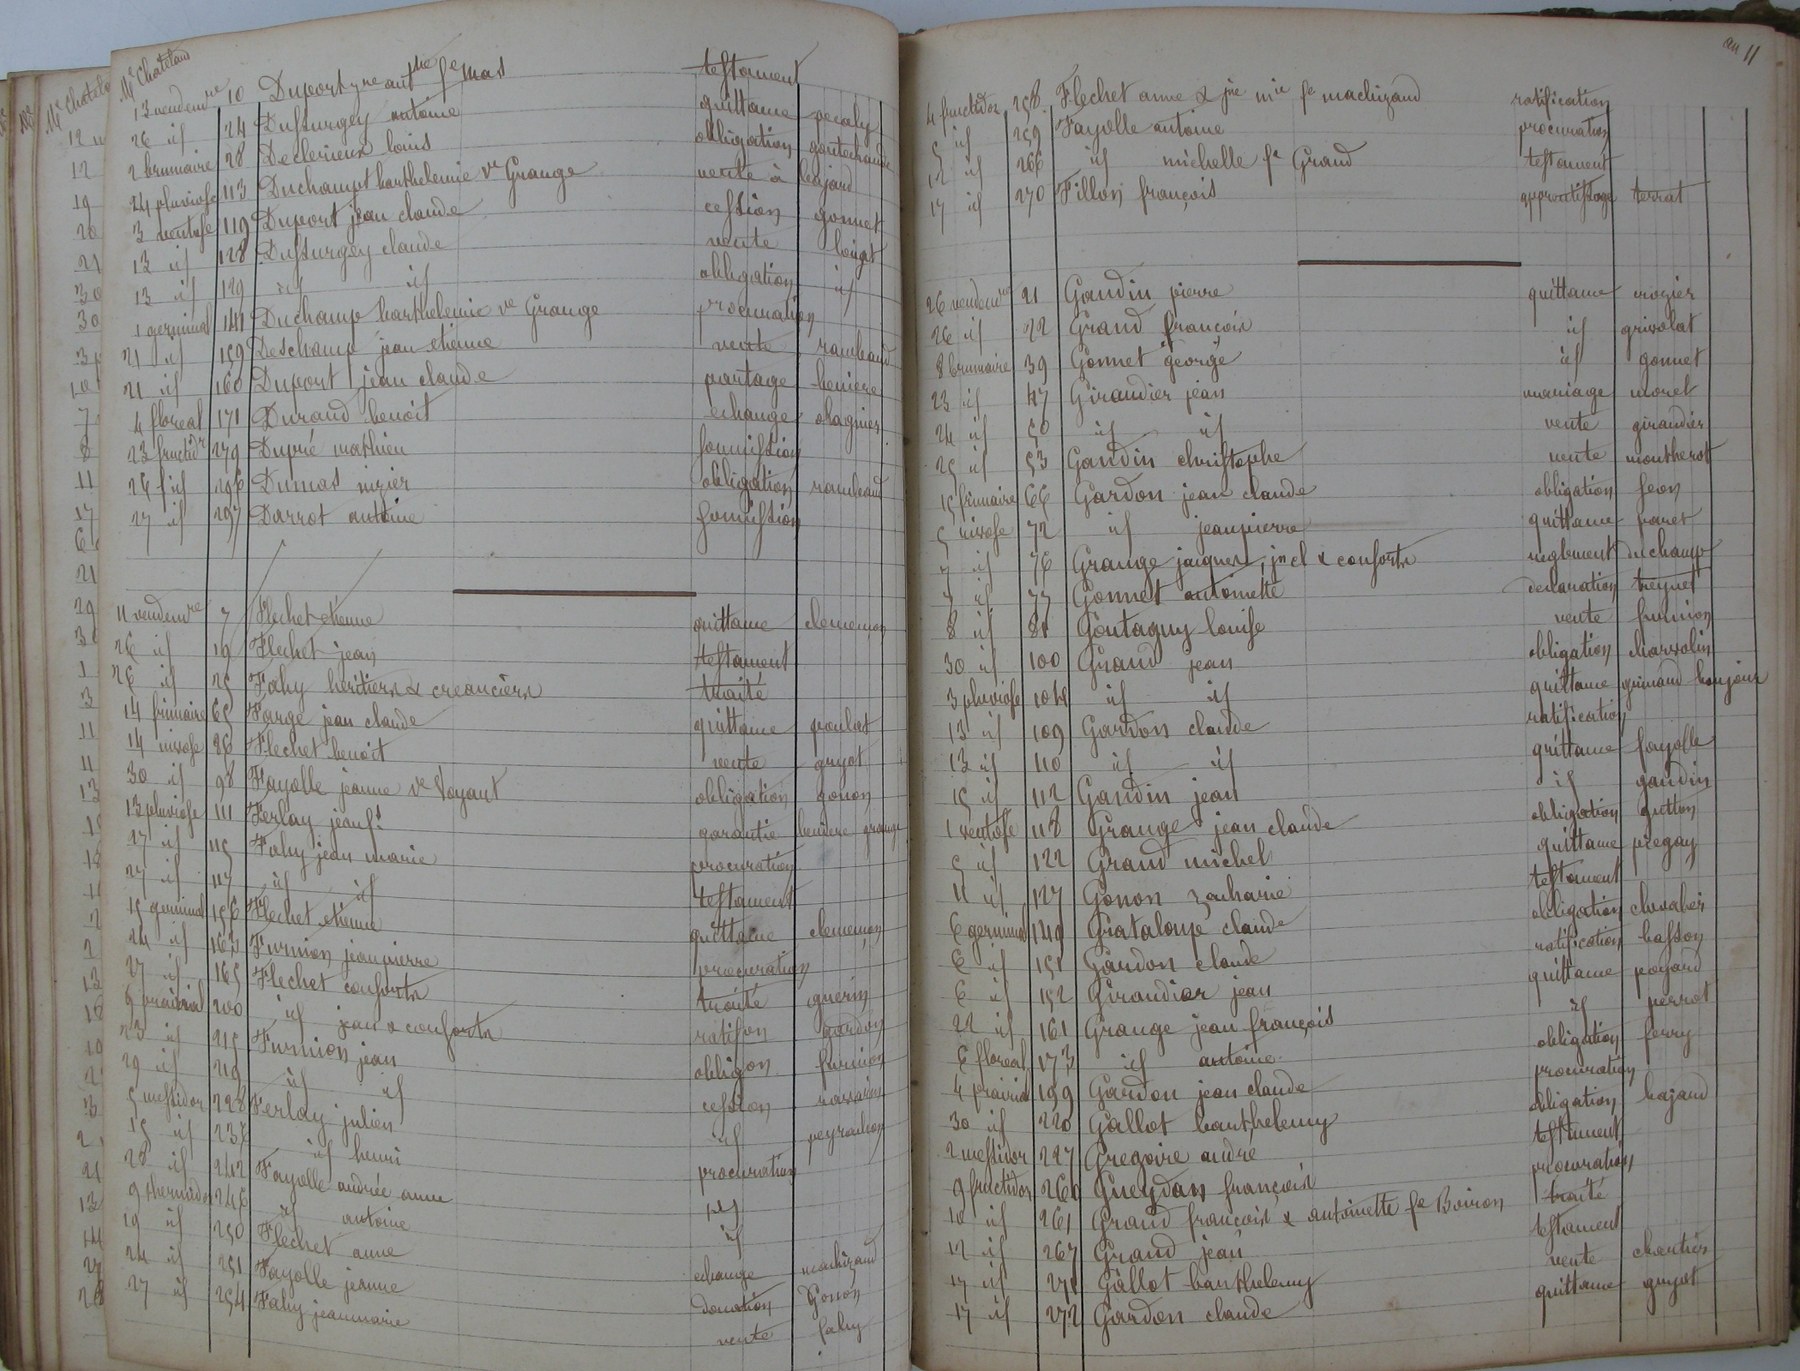 Me Chatelard
13 vendemre 10 Duport yre antne fe mas testament
26 id 24 Dussurgey antoine quittance pecaly
2 brumaire 28 Declerieux louis obligation goutechaude
24 pluviose 113 Duchampt barthelemie ve Grange vente à bajard
3 ventose 119 Duport jean claude cession gonnet
13 id 128 Dussurgey claude vente loigt
13 id 129 id id obligation id
1 germinal 141 Duchamp barthelemie ve Grange procuration
21 id 159 Deschamp jean etienne vente rambaud
21 id 160 Duport jean claude partage beniere
4 floreal 171 Durand benoit echange chagnier
23 fructidr 279 Dupré mathieu soumission
26 id 296 Dumas nizier obligation rambaud
27 id 297 Darrot antoine soumission
11 vendemre 7 Flechet etienne quittance clemenson
26 id 19 Flechet jean testament
26 id 25 Fahy heritiers & creanciers traité
14 frimaire 65 Farge jean claude quittance poulat
14 nivose 86 Flechet benoit vente guyot
30 id 98 Fayolle jeanne ve Voyant obligation gonon
13 pluviose 111 Ferlay jean fs garantie beniere grange
27 id 115 Fahy jean marie procuration
27 id 117 id id testament
15 germinal 156 Flechet etienne quittance clemenson
24 id 164 Furnion jean pierre procuration
27 id 165 Flechet consorts traité guerin
9 prairial 200 id jean & consorts ratifon gardon
23 id 215 Furnion jean obligon furnion
29 id 219 id id cession
5 messidor 228 Ferlay julien id peyrachon
15 id 236 id henri procuration
28 id 242 Fayolle andrée anne id
9 thermidor 246 id antoine id
19 id 250 Flechet anne echange machizaud
24 id 251 Fayolle jeanne donation Gonon
27 id 254 Fahy jeanmarie vente fahy
an 11
4 fructidor 258 Flechet anne & jne mie fe machizaud ratification
5 id 259 Fayolle antoine procuration
12 id 266 id michelle fe Grand testament
17 id 270 Fillon françois apprentissage terrat
26 vendemre 21 Gandin pierre quittance rozier
26 id 22 Grand françois id grivolat
8 brumaire 39 Gonnet george id gonnet
23 id 47 Giraudier jean mariage moret
24 id 50 id id vente giraudier
25 id 53 Gandin christophe vente montherot
15 frimaire 66 Gardon jean claude obligation feon
5 nivose 72 id jeanpierre quittance paret
7 id 76 Grange jacques, jn cl & consorts reglement duchamp
7 id 77 Gonnet antoinette declaration treynet
8 id 81 Goutagny louise vente furnion
30 id 100 Grand jean obligation charvolin
3 pluviose 104 id id quittance grimaud bonjour
13 id 109 Gardon claude ratification
13 id 110 id id quittance fayolle
15 id 112 Gandin jean id gaudin
1 ventose 118 Grange jean claude obligation guitton
5 id 122 Grand michel quittance piegay
11 id 127 Gonon zacharie testament
6 germinal 149 Grataloup claude obligation chevalier
6 id 151 Gardon claude ratification basson
6 id 152 Giraudier jean quittance poyard
22 id 161 Grange jean françois id perrot
6 floreal 173 id antoine obligation ferry
4 prairial 199 Gardon jean claude procuration
30 id 220 Gallot barthelemy obligation bajard
2 messidor 227 Gregoire andré testament
9 fructidor 260 Gueydan françois procuration
10 id 261 Grand françois & antoinette fe Boiron traité
12 id 267 Grand jean testament
17 id 271 Gallot barthelemy vente chartier
17 id 272 Gardon claude quittance guyot